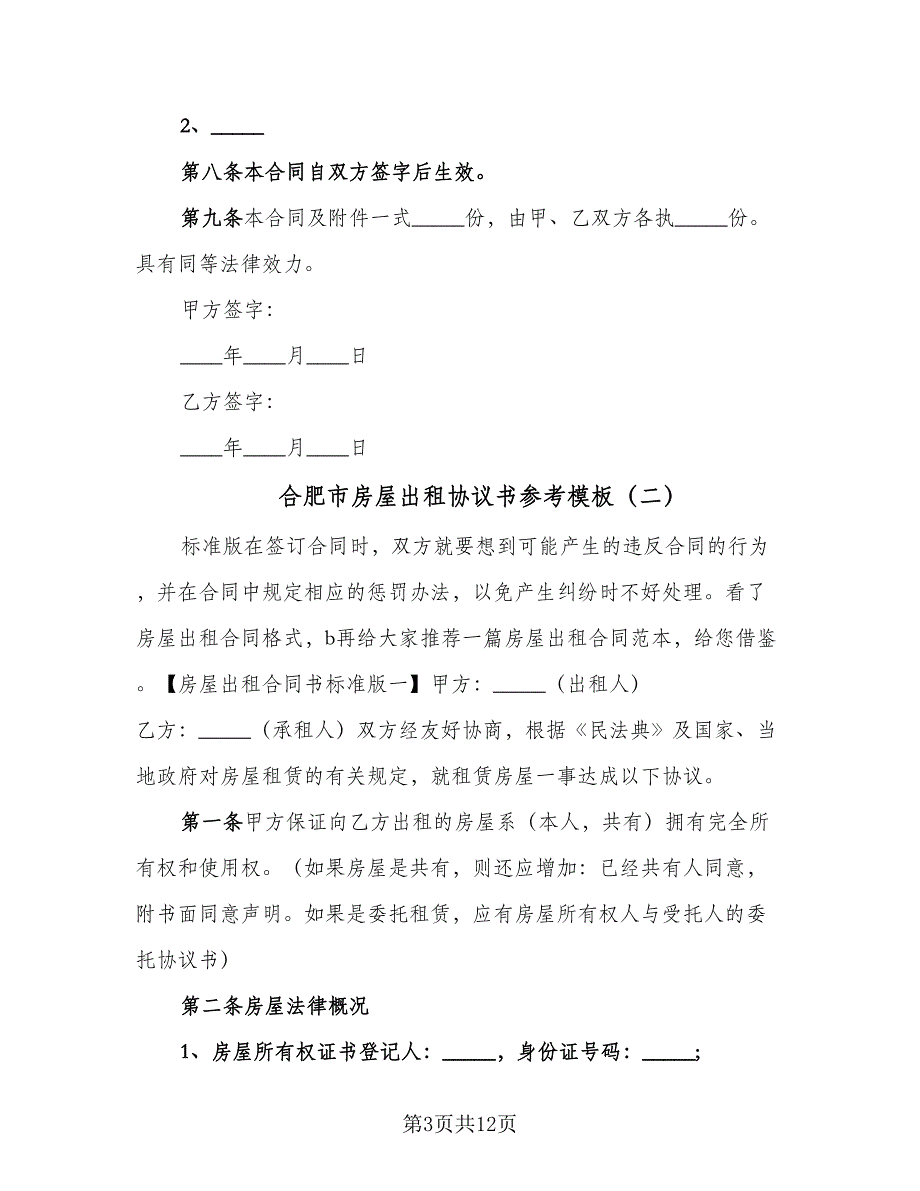 2、_____
第八条本合同自双方签字后生效。
第九条本合同及附件一式_____份，由甲、乙双方各执_____份。
具有同等法律效力。
甲方签字：
____年____月____日
乙方签字：
____年____月____日
合肥市房屋出租协议书参考模板（二）
标准版在签订合同时，双方就要想到可能产生的违反合同的行为
，并在合同中规定相应的惩罚办法，以免产生纠纷时不好处理。看了
房屋出租合同格式，b再给大家推荐一篇房屋出租合同范本，给您借鉴
。【房屋出租合同书标准版一】甲方：_____（出租人）
乙方：_____（承租人）双方经友好协商，根据《民法典》及国家、当
地政府对房屋租赁的有关规定，就租赁房屋一事达成以下协议。
第一条甲方保证向乙方出租的房屋系（本人，共有）拥有完全所
有权和使用权。（如果房屋是共有，则还应增加：已经共有人同意，
附书面同意声明。如果是委托租赁，应有房屋所有权人与受托人的委
托协议书）
第二条房屋法律概况
1、房屋所有权证书登记人：_____，身份证号码：_____;
第3页共12页